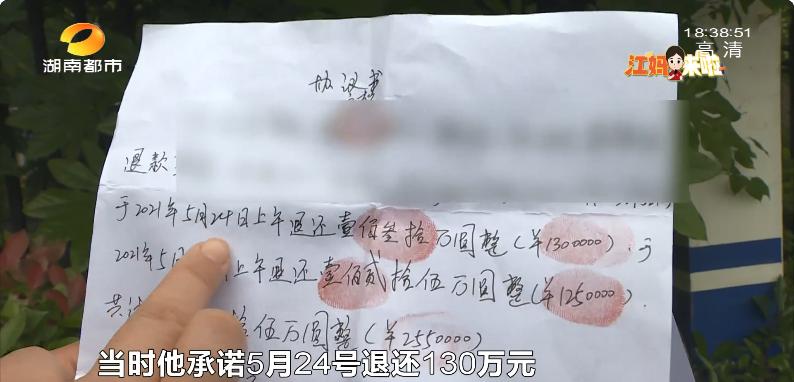 湖南都市
18:38:51
高清
江妈来啦
协议书
退款
于2021年5月24日上午退还壹佰叁拾万圆整(¥1300000).于
2021年5月 上午退还壹佰贰拾伍万圆整(¥1250000).
伍万圆整(¥2550000)
当时他承诺5月24号退还130万元